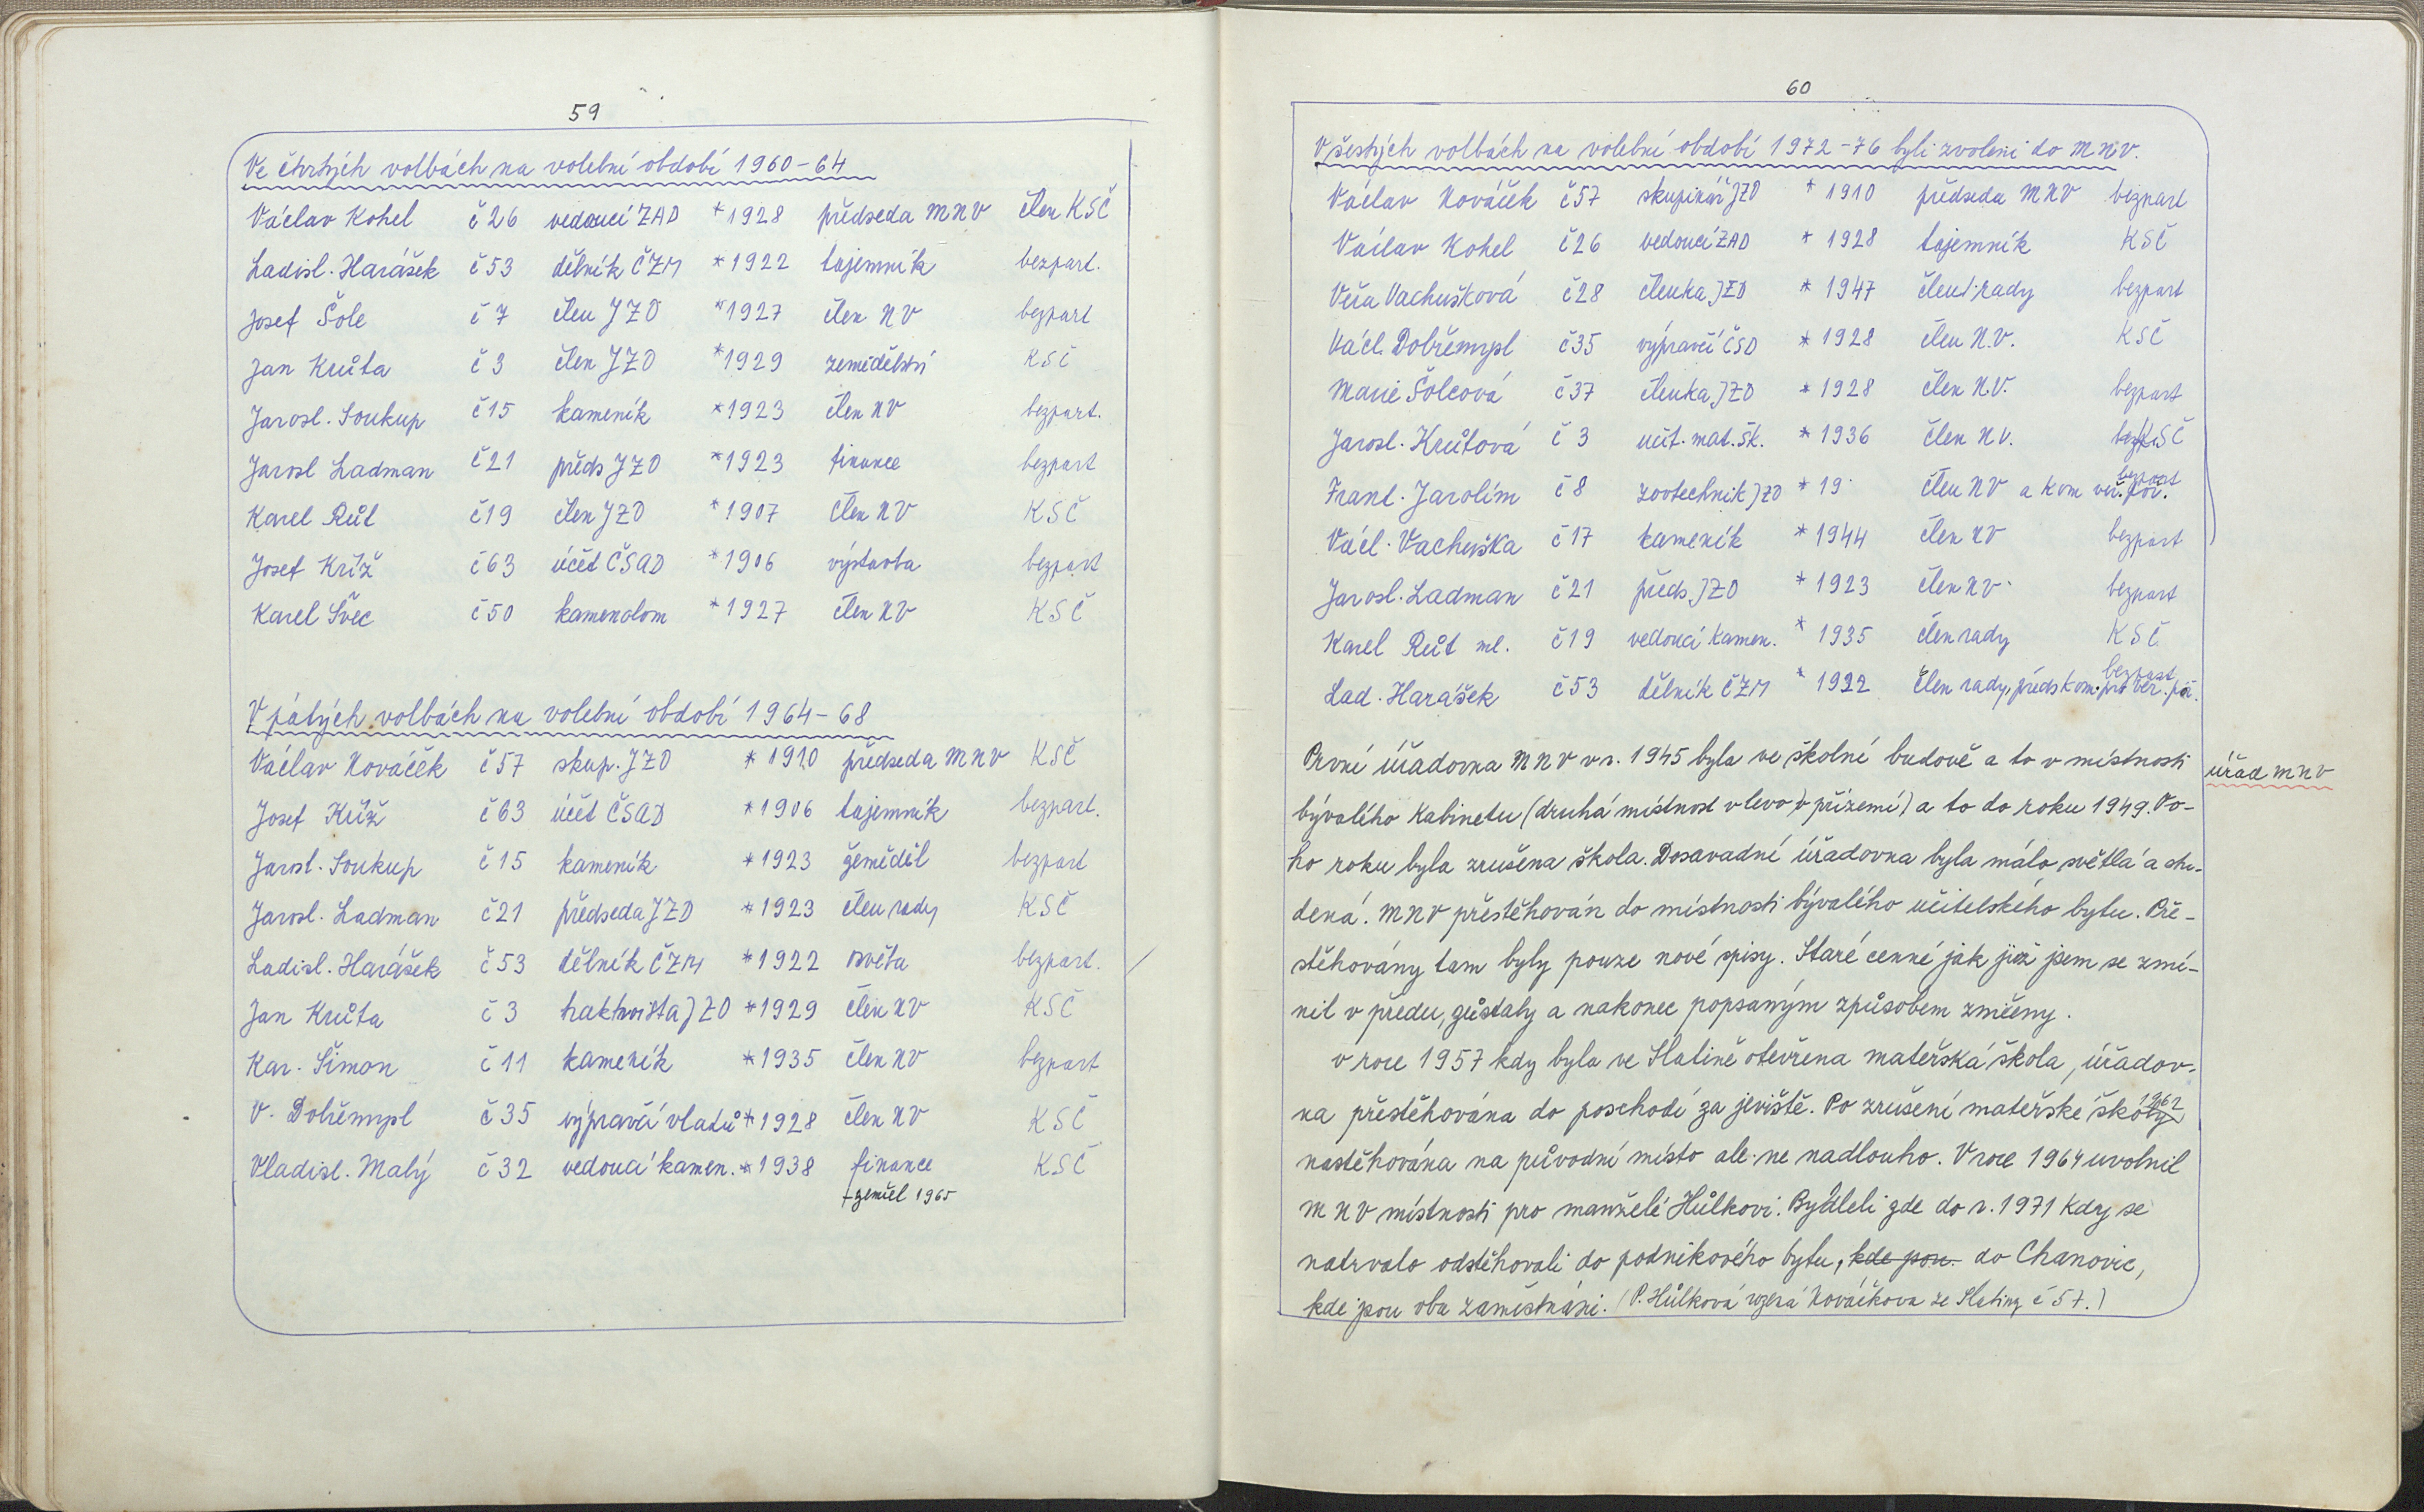 59
Ve čtvrtých volbách na volební období 1960-64
Václav Kohel č 26 vedoucí ZAD *1928 předseda MNV člen KSČ
Ladisl. Harášek č 53 dělník ČZM *1922 tajemník bezpart.
Josef Šole č 7 člen JZD *1927 člen NV bezpart
Jan Krůta č 3 člen JZD *1929 zemědělství KSČ
Jarosl. Soukup č 15 kameník *1923 člen NV bezpart.
Jarosl Ladman č 21 předs JZD *1923 finance bezpart
Karel Růt č 19 člen JZD *1907 Člen NV KSČ
Josef Kříž č 63 účet ČSAD *1906 výstavba bezpart
Karel Švec č 50 kamenolom *1927 člen NV KSČ
V pátých volbách na volební období 1964-68
Václav Nováček č 57 skup. JZD *1910 předseda MNV KSČ
Josef Kříž č 63 účet ČSAD *1906 tajemník bezpart.
Jarosl. Soukup č 15 kameník *1923 zeměděl bezpart
Jarosl. Ladman č 21 předseda JZD *1923 člen rady KSČ
Ladisl. Harášek č 53 dělník ČZM *1922 osvěta bezpart.
Jan Krůta č 3 traktorista JZD *1929 člen NV KSČ
Kar. Šimon č 11 kameník *1935 člen NV bezpart
V. Dobřemysl č 35 výpravčí vlaků *1928 člen NV KSČ
Vladisl. Malý č 32 vedoucí kamen. *1938 finance KSČ
+zemřel 1965
60
V šestých volbách na volební období 1972-76 byli zvoleni do MNV.
Václav Nováček č 57 skupinář JZD *1910 předseda MNV bezpart
Václav Kohel č 26 vedoucí ZAD *1928 tajemník KSČ
Věra Vachušková č 28 členka JZD *1947 člen rady bezpart
Václ. Dobřemysl č 35 výpravčí ČSD *1928 člen N.V. KSČ
Marie Šolcová č 37 členka JZD *1928 člen N.V. bezpart
Jarosl. Krůtová č 3 učit. mat. šk. *1936 člen N.V. KSČ
Frant. Jarolím č 8 zootechnik JZD *19 člen NV a kom veř. poř. bezpart
Václ. Vachuška č 17 kameník *1944 člen NV bezpart
Jarosl. Ladman č 21 předs. JZD *1923 člen NV bezpart
Karel Růt ml. č 19 vedoucí kamen. *1935 člen rady KSČ
Lad. Harášek č 53 dělník ČZM *1922 člen rady, předs kom. pro veř. poř. bezpart
První úřadovna MNV v r. 1945 byla ve školní budově a to v místnosti
úřad MNV
bývalého kabinetu (druhá místnost vlevo v přízemí) a to do roku 1949. To-
ho roku byla zrušena škola. Dosavadní úřadovna byla málo světlá a stu-
dená. MNV přestěhován do místnosti bývalého učitelského bytu. Pře-
stěhovány tam byly pouze nové spisy. Staré cenné jak již jsem se zmí-
nil v předu, zůstaly a nakonec popsaným způsobem zničeny.
v roce 1957 kdy byla ve Slatině otevřena mateřská škola, úřadov-
na přestěhována do poschodí za jeviště. Po zrušení mateřské školy 1962
nastěhována na původní místo ale ne nadlouho. V roce 1964 uvolnil
MNV místnosti pro manželé Hůlkovi. Bydleli zde do r. 1971 kdy se
natrvalo odstěhovali do podnikového bytu, kde jsou do Chanovic,
kde jsou oba zaměstnáni. (P. Hůlková Nováčkova ze Slatiny č 57.)